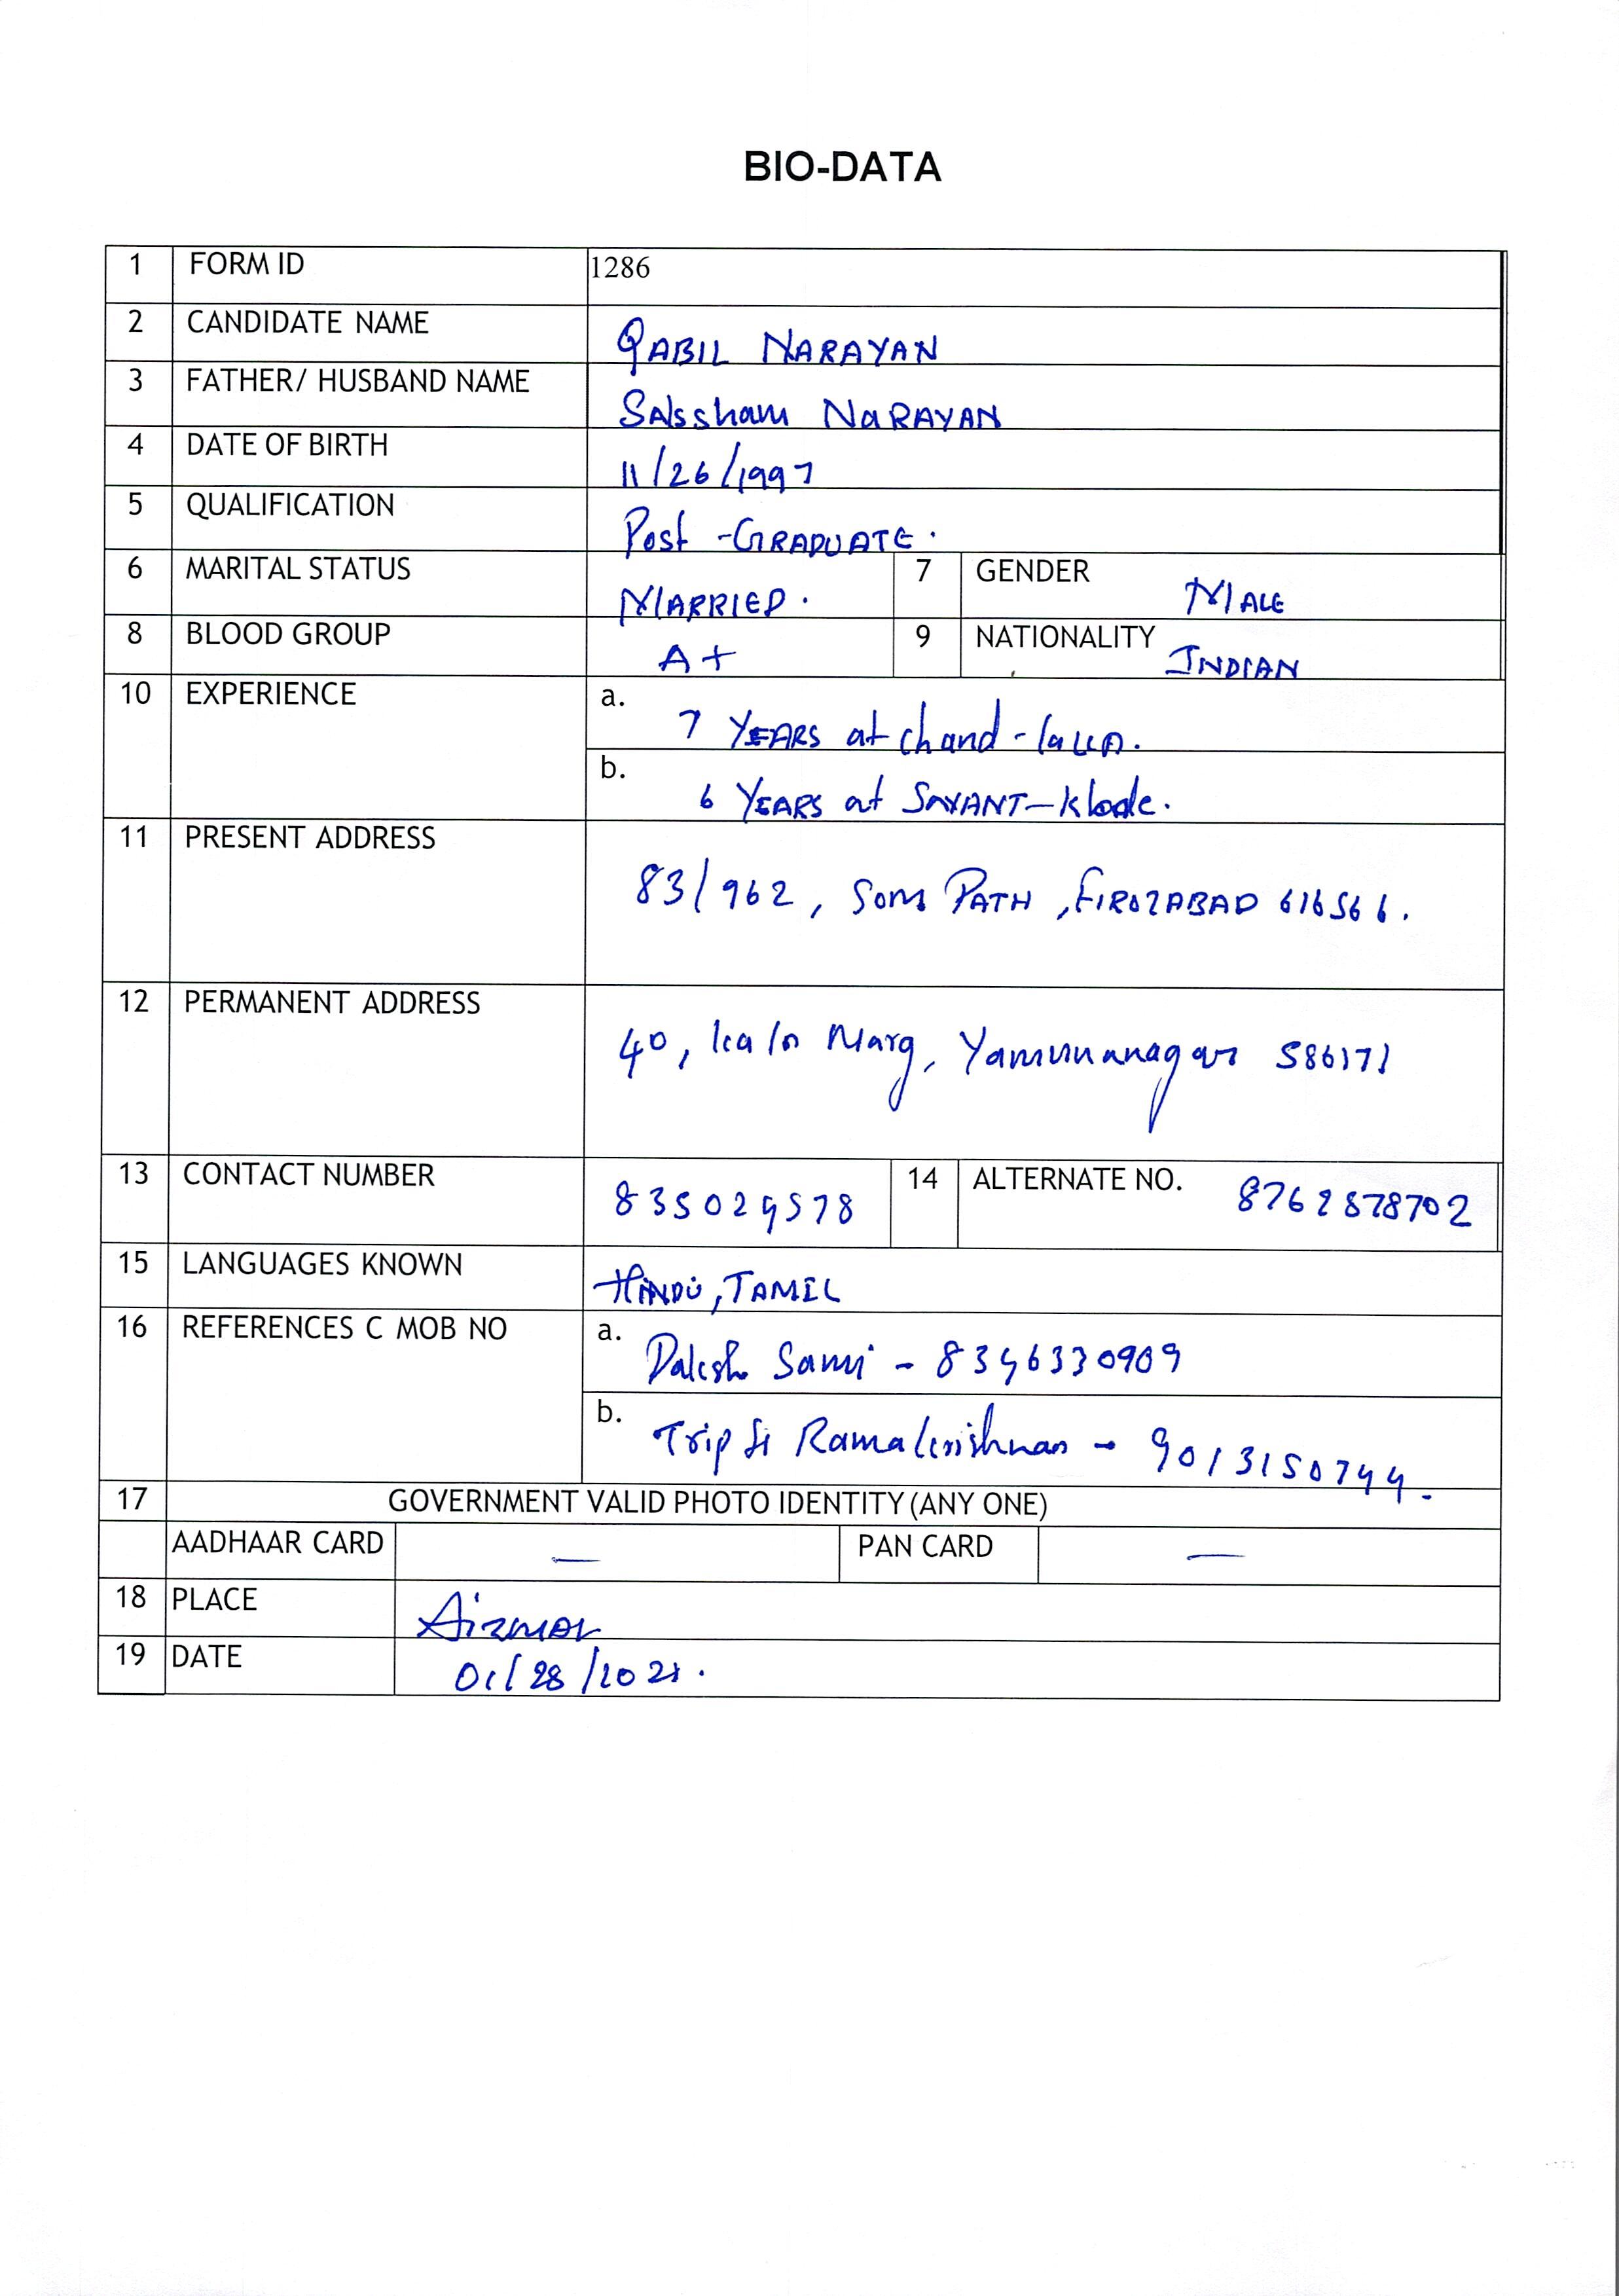 BIO-DATA
1 FORM ID 1286
2 CANDIDATE NAME QABIL NARAYAN
3 FATHER/ HUSBAND NAME NARAYAN
4 DATE OF BIRTH 11/26/1997
5 QUALIFICATION Post-GRADUATE.
6 MARITAL STATUS MARRIED. 7 GENDER MALE
8 BLOOD GROUP A+ 9 NATIONALITY INDIAN
10 EXPERIENCE a. 7 YEARS at chand-lalla.
b. 6 YEARS at
11 PRESENT ADDRESS 83/962, Som PATH, FIROZABAD 616566.
12 PERMANENT ADDRESS 40, kala Marg, Yamunanagar 586171
13 CONTACT NUMBER 835029578 14 ALTERNATE NO. 8762878702
15 LANGUAGES KNOWN HINDU, TAMIL
16 REFERENCES C MOB NO a. Daksh Sami - 8396330909
b. Tripti Ramakrishnan - 9013150799.
17 GOVERNMENT VALID PHOTO IDENTITY (ANY ONE)
AADHAAR CARD — PAN CARD —
18 PLACE
19 DATE 01/28/2021.